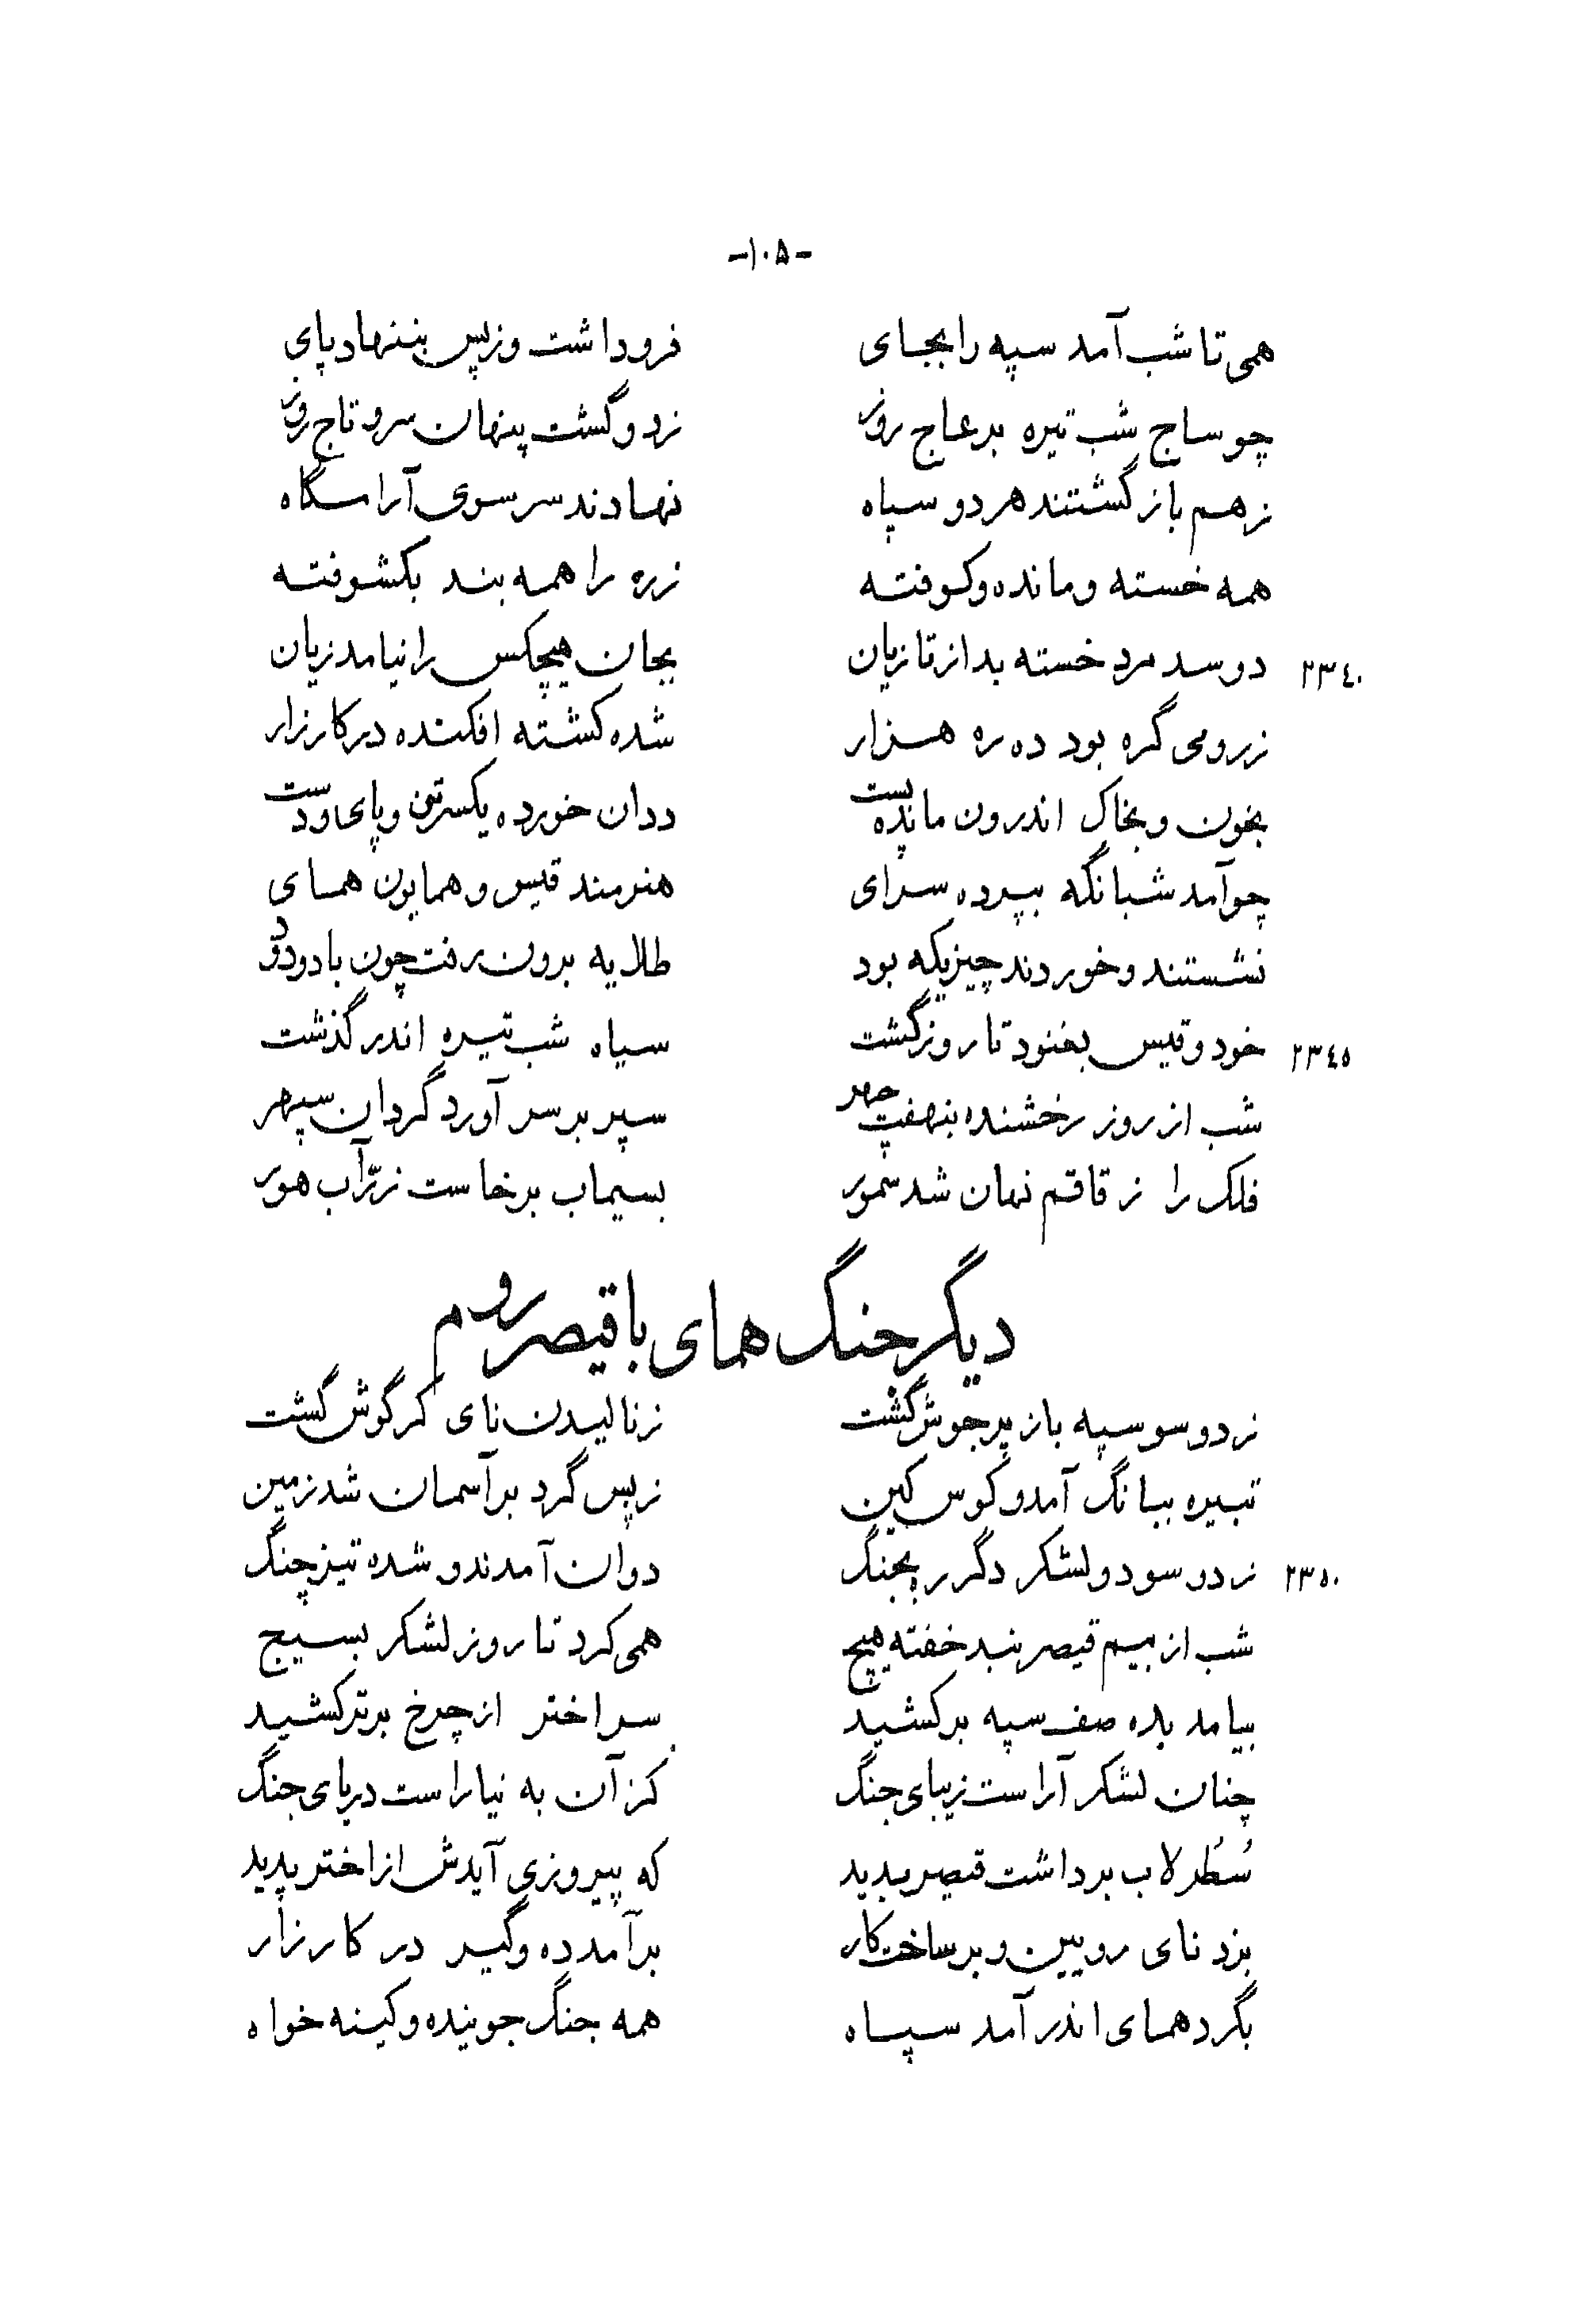 -۱۰۵-
همی تا شب آمد سپه را بجای فروداشت وزپس بننهاد پای
چو ساج شب تیره بر عاج روز زد و گشت پنهان سر و تاج روز
زهم بازگشتند هر دو سپاه نهادند سر سوی آرامگاه
همه خسته و مانده و کوفته زره را همه بند بکشوفته
۲۳٤۰ دوسد مرد خسته بد از تازیان بجان هیچکس را نیامد زیان
زرومی گره بود ده ره هزار شده کشته افکنده در کارزار
بخون و بخاک اندرون مانده پست ددان خورده یکسر تن و پای و دست
چو آمد شبانگه بپرده سرای هنرمند قیس و همایون همای
نشستند و خوردند چیزیکه بود طلایه برون رفت چون باد و دود
۲۳٤٥ خود و قیس بغنود تا روز گشت سیاه شب تیره اندر گذشت
شب از روز رخشنده بنهفت چهر سپر بر سر آورد گردان سپهر
فلک را ز قاقم نهان شد سمور بسیماب برخاست زرّآب هور
دیگر جنگ همای با قیصر روم
زدو سو سپه باز پرجوش گشت زنالیدن نای کر گوش گشت
تبیره ببانگ آمد و کوس کین زپس گرد بر آسمان شد زمین
۲۳٥۰ زدو سو دو لشکر دگر ره بجنگ دوان آمدند و شده تیز چنگ
شب از بیم قیصر نبد خفته هیچ همی کرد تا روز لشکر بسیج
بیامد بده صف سپه برکشید سر اختر از چرخ برتر کشید
چنان لشکر آراست زیبای جنگ کز آن به نیاراست دریای جنگ
سُطُرلاب برداشت قیصر بدید که پیروزی آیدش از اختر پدید
بزد نای رویین و بر ساخت کار برآمد ده و گیر در کارزار
بگرد همای اندر آمد سپاه همه جنگ جوینده و کینه خواه